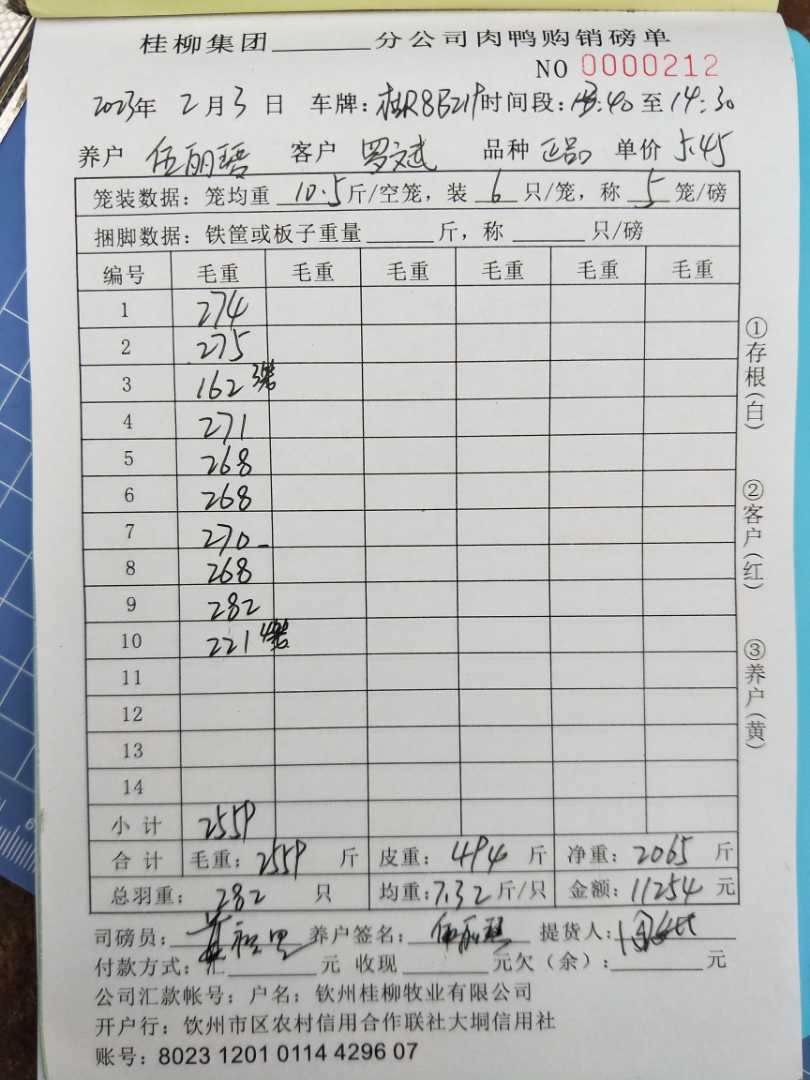 桂柳集团______分公司肉鸭购销磅单
NO 0000212
2023年 2月 3日 车牌：桂R8B219 时间段：13:40 至 14:30
养户 伍丽碧 客户 罗文武 品种 正品 单价 5.45
笼装数据：笼均重 10.5 斤/空笼，装 6 只/笼，称 5 笼/磅
捆脚数据：铁筐或板子重量______斤，称______只/磅
编号 毛重 毛重 毛重 毛重 毛重 毛重
1 274
2 275
3 162 3笼
4 271
5 268
6 268
7 270
8 268
9 282
10 221 4笼
11
12
13
14
小计 2559
合计 毛重：2559 斤 皮重：494 斤 净重：2065 斤
总羽重：282 只 均重：7.32 斤/只 金额：11254 元
司磅员： 养户签名：伍丽碧 提货人：
付款方式：汇______元 收现______元欠（余）：______元
公司汇款帐号：户名：钦州桂柳牧业有限公司
开户行：钦州市区农村信用合作联社大垌信用社
账号：8023 1201 0114 4296 07
①存根（白）
②客户（红）
③养户（黄）